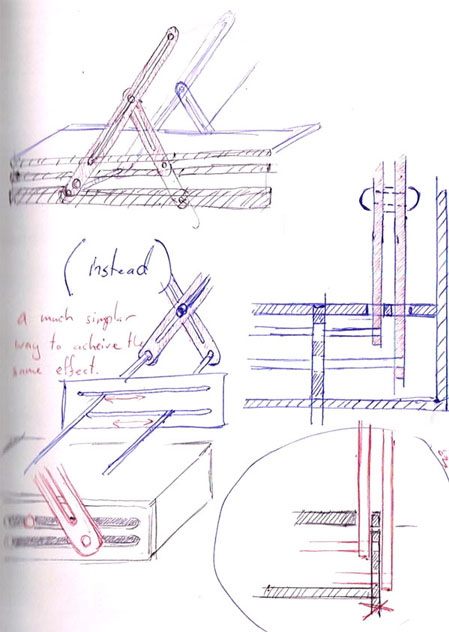 (instead)
a much simpler
way to acheive the
same effect.